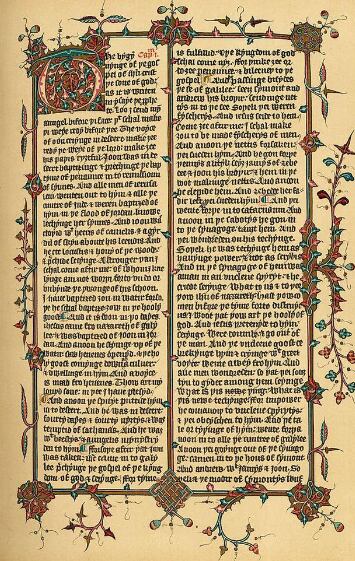 he bygȳ Capᵐ. i.
nynge of þe gos
pel of ihū crist
þe sone of god:
as it is writen
in ysaye þe pphe
te. Lo I send my
aungel bifore þi face: þᵗ schal make
þi weye redy bifore þee. The voyce
of oon cryinge in desert: make ȝee
redy þe weye of þe lord: make ȝee
his paþis ryȝtful. Joon was in de
sert baptisynge & prechinge þe bap
tym of penaunce in to remissioun
of synnes. And alle men of ierusa
lem wenten out to hym & alle þe
cuntre of iude: & weren baptised of
hym in þe flood of jordan: knowe
lechynge her synnes. And ioon was
cloþid wᵗ heeris of camelis: & a gir
dil of skyn aboute his leendis. And
he eet locustis & hony of þe woode:
& prechide seyinge. A stronger þan I
schal come aftir me: of whom I kne
linge am not worþi forto vndo or
vnbynde þe þwonge of his schoon.
I haue baptised ȝou in water: forso
þe he schal baptise ȝou in þe hooly
goost. And it is don in þo dayes
ihesus came fro nazareth of galy
lee: & was baptised of ioon in ior
dan. And anoon he styinge up of þe
water: saw heuenes opened: & þe hoo
ly goost comynge doun as culuer:
& dwellinge in hym. And a voyce
is maad fro heuenes. Thou art my
loued sone: in þee I haue plesid.
And anoon þe spirit puttide hym
in to desert. And he was in desert
fourty dayes & fourty nyȝtis: & was
temptid of sathanas. And he was
wᵗ beestis: & aungelis mynystry
den to hym. Forsoþe aftir þat joon
was taken: came in to galy
lee prechynge þe gospel of þe kyng
dom of god: & seyinge. For tyme
is fulfild: & þe kyngdom of god
schal come nyȝ: for þinke ȝee or
do ȝee penaunce: & bileeue ȝee to þe
gospel. And he passinge bisydis
þe se of galilee: seeȝ symont and
andreu his broþer: sendinge nett
tis in to þe see. Soþeli þei weren
fyscheris. And ihesus seide to hem.
Come ȝee aftir me: I schal make
ȝou to be maad fyscheris of men.
And anoon þe nettis forsaken:
þei sueden hym. And he gon forþe
þennes a litil: seeȝ james of zebe
dee & joon his broþer: & hem in þe
boot makinge nettis. And anoon
he clepide hem. And
þei sueden hym. And þei
wente forþe in to capharnaum. And
anoon in þe sabotis he gon in
to þe synagoge: tauȝt hem. And
þei wondreden on his techinge.
Soþeli he was techynge hem as
hauynge power: & not as scribis
And in þe synagoge of hem was
a man in an vnclene spyryt: & he
cryede seyinge. What to us & to þee
þou ihū of nazareth: hast þou co
men bifore þe tyme forto destruye
us: I woot þat þou art þe hooly of
god. And ihesus þretenyde to hym
seyinge. Wexe domb: & go out of
þe man. And þe vnclene goost de
brekynge hym: & cryinge wᵗ greet
voyce: wente awey fro hym. And
alle men wondreden: so þat þei souȝ
ten to gyder among hem seyinge
What is þis newe þing: What is þis
newe techynge: for in power
he comaundiþ to vnclene spyrytis:
& þei obeischen to hym. And þe ta
le or tydinge of hym: wente forþe
anoon in to alle þe cuntree of galylee
Anoon þei goynge out of þe synago
ge: camen in to þe hous of symont
And andreu: wᵗ james & joon. So
þeli & þe modir of symontis wyf